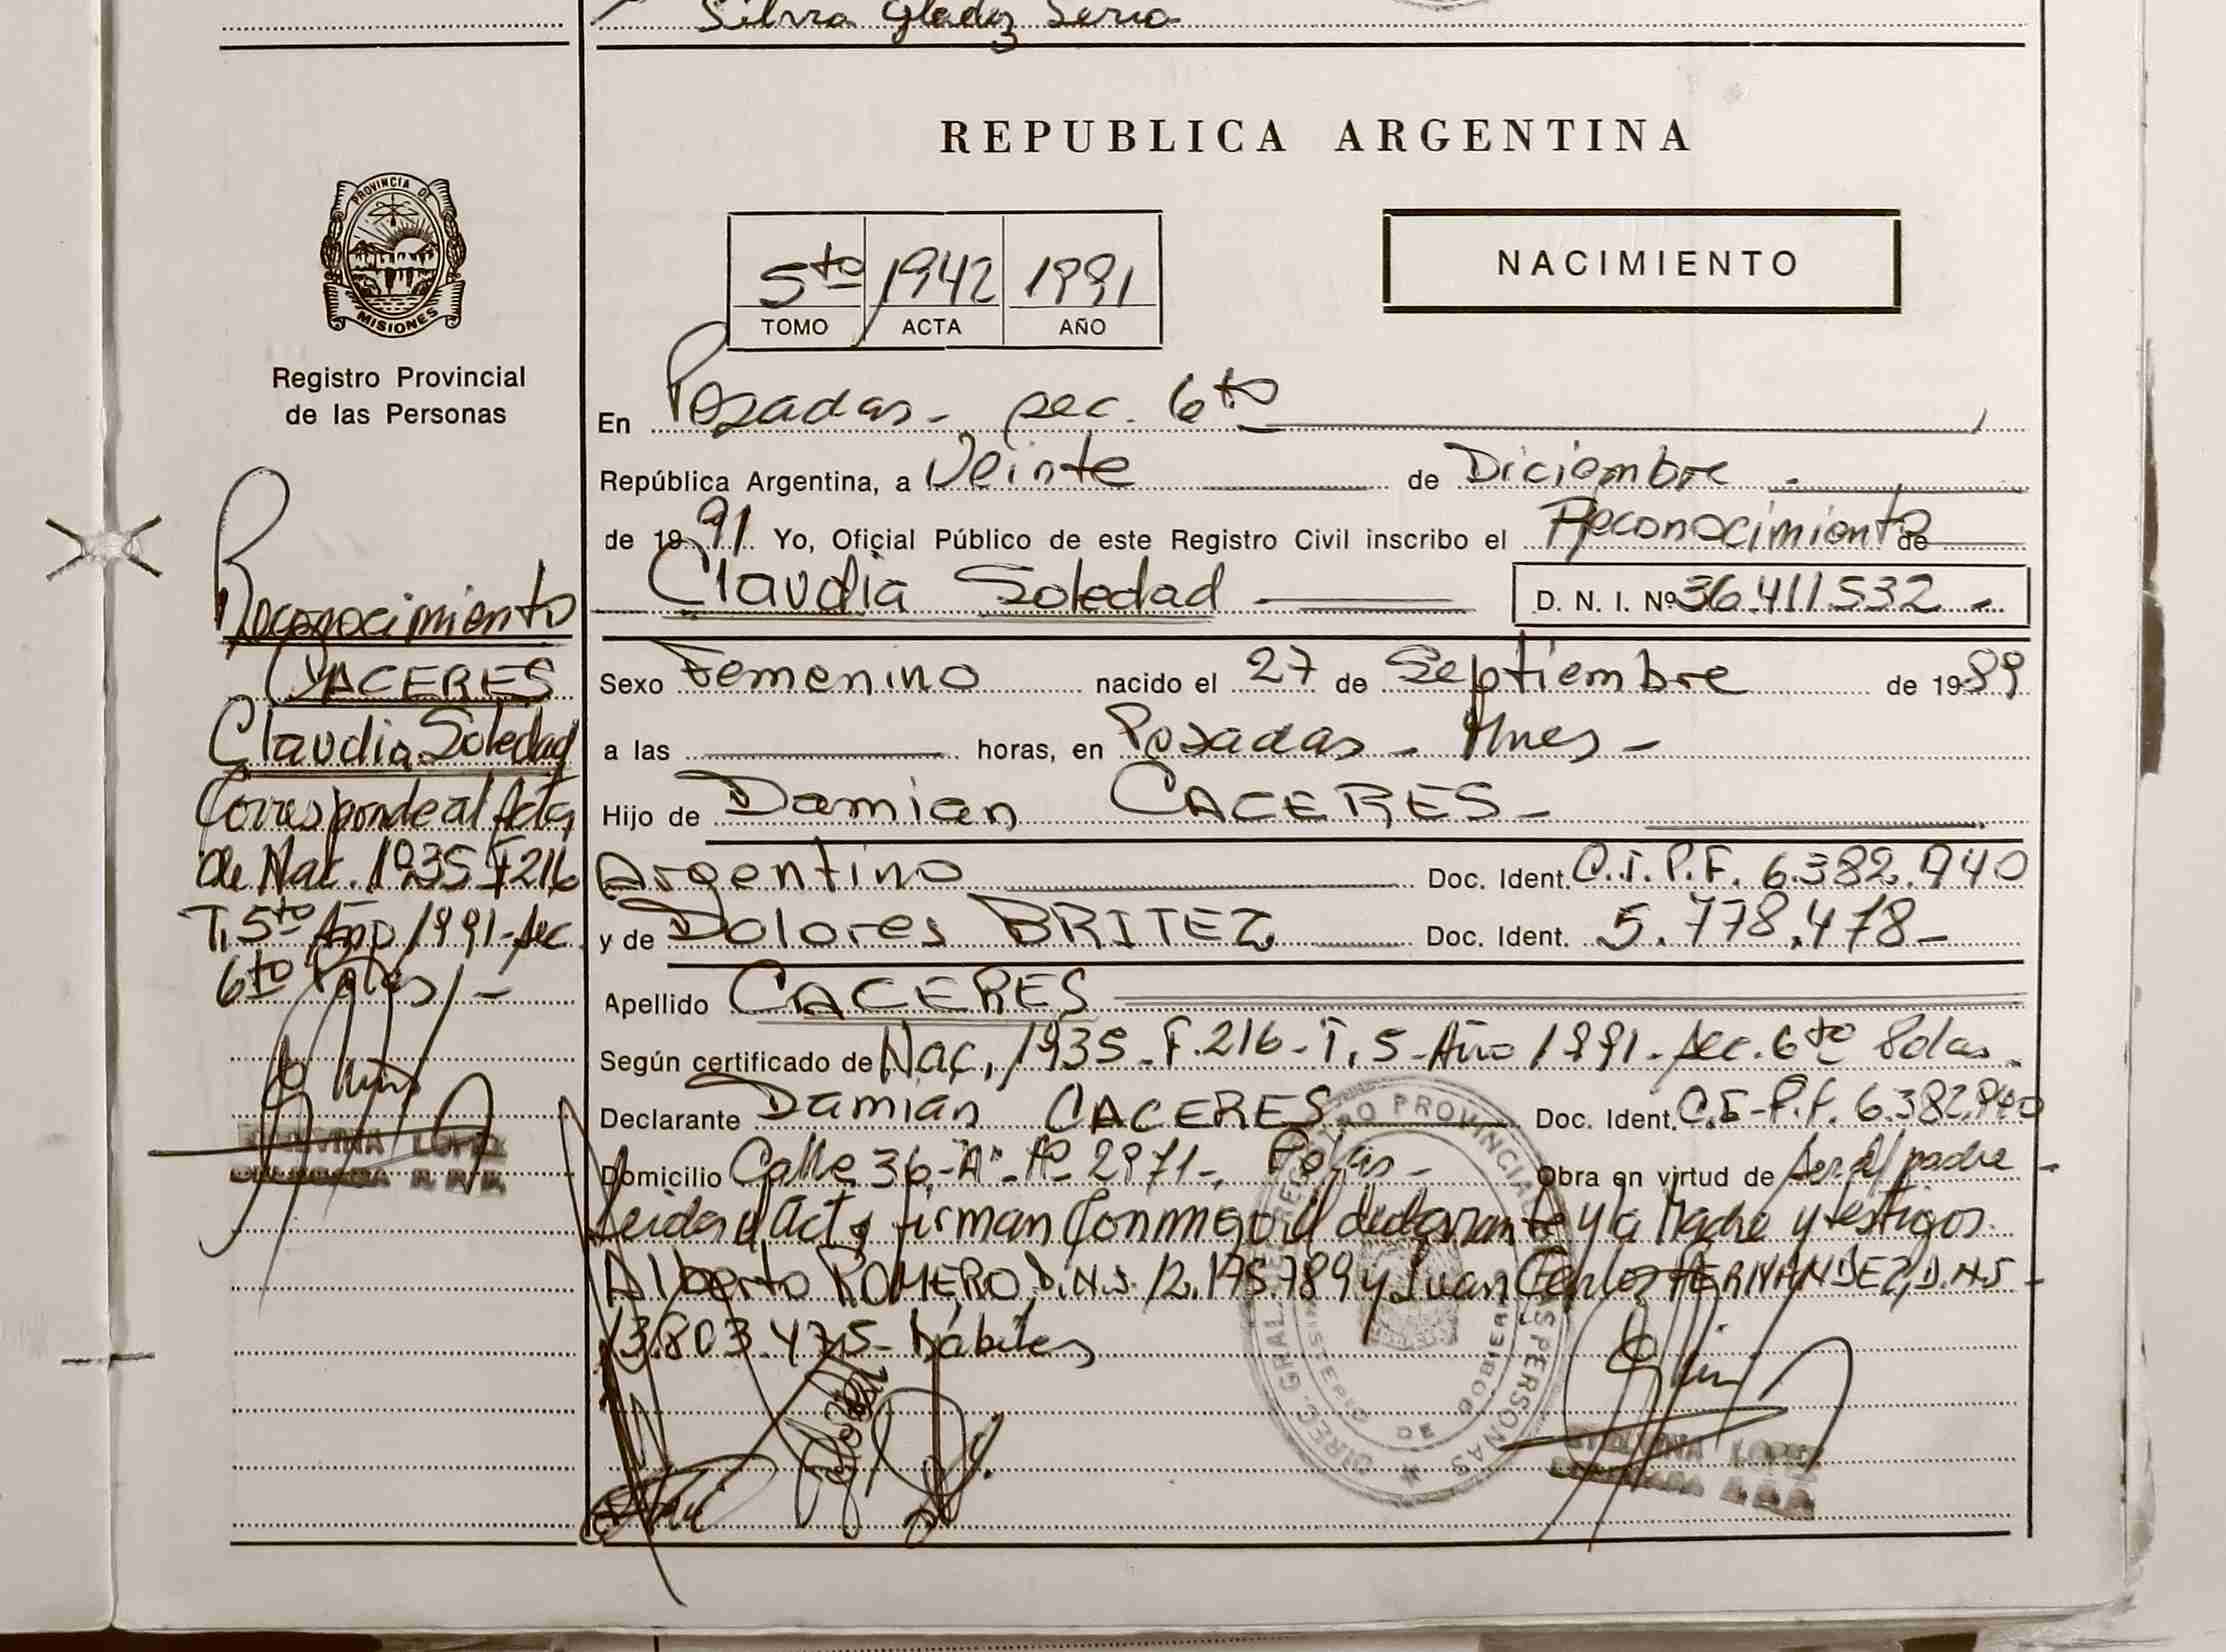 Silvia Gladez
REPUBLICA ARGENTINA
PROVINCIA DE
MISIONES
Registro Provincial
de las Personas
5to 1942 1991
TOMO ACTA AÑO
NACIMIENTO
En Posadas - sec. 6to
República Argentina, a Veinte de Diciembre
de 1991 Yo, Oficial Público de este Registro Civil inscribo el Reconocimiento de
Claudia Soledad D. N. I. Nº 36.411.532 -
Sexo Femenino nacido el 27 de Septiembre de 1989
a las horas, en Posadas - Mnes -
Hijo de Damian CACERES -
Argentino Doc. Ident. C.I.P.F. 6.382.940
y de Dolores BRITEZ Doc. Ident. 5.778.478 -
Apellido CACERES
Según certificado de Nac. 1935 - F. 216 - T. 5 - Año 1991 - sec. 6to Pdas -
Declarante Damian CACERES Doc. Ident. C.I - P.F. 6.382.940
Domicilio Calle 36 - "A" - Nº 2971 - Pdas - Obra en virtud de ser el padre -
Leida el Acta firman conmigo el declarante y la Madre y testigos
Alberto ROMERO D.N.I. 12.175.789 y Juan Carlos FERNANDEZ, D.N.I. -
13.803.475 - hábiles
Reconocimiento
CACERES
Claudia Soledad
Corresponde al Acta
de Nac. 1935 F 216
T. 5to Año 1991 - sec.
6to Pdas -
LOPEZ
DIREC. GRAL. REGISTRO PROVINCIAL DE LAS PERSONAS
MINISTERIO DE GOBIERNO
LOPEZ